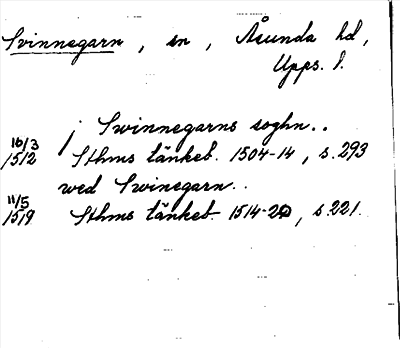 Svinnegarn, sn, Åsunda hd,
Upps. l.
j Swinnegarns soghn..
16/3
1512 Sthms tänkeb. 1504-14, s.293
wed Swinegarn..
11/5
1519 Sthms tänkeb. 1514-20, s.221.